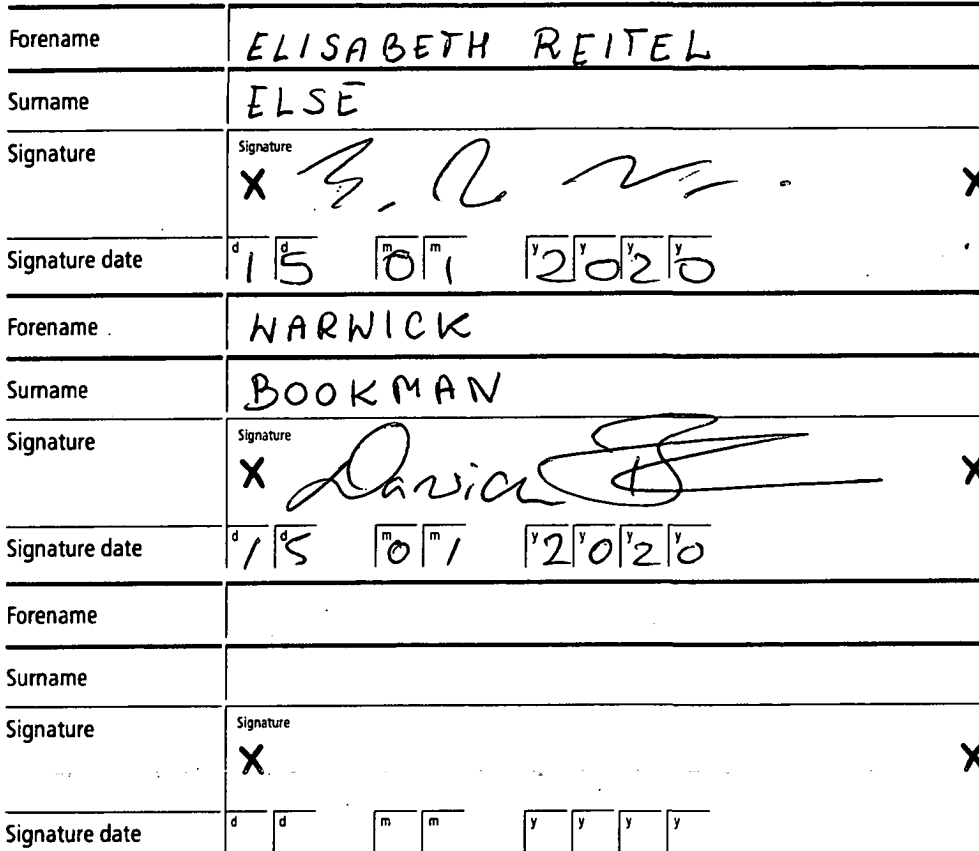 Forename ELISABETH REITEL
Surname ELSE
Signature Signature
X X
Signature date d 1 d 5 m 0 m 1 y 2 y 0 y 2 y 0
Forename WARWICK
Surname BOOKMAN
Signature Signature
X X
Signature date d 1 d 5 m 0 m 1 y 2 y 0 y 2 y 0
Forename
Surname
Signature Signature
X X
Signature date d d m m y y y y